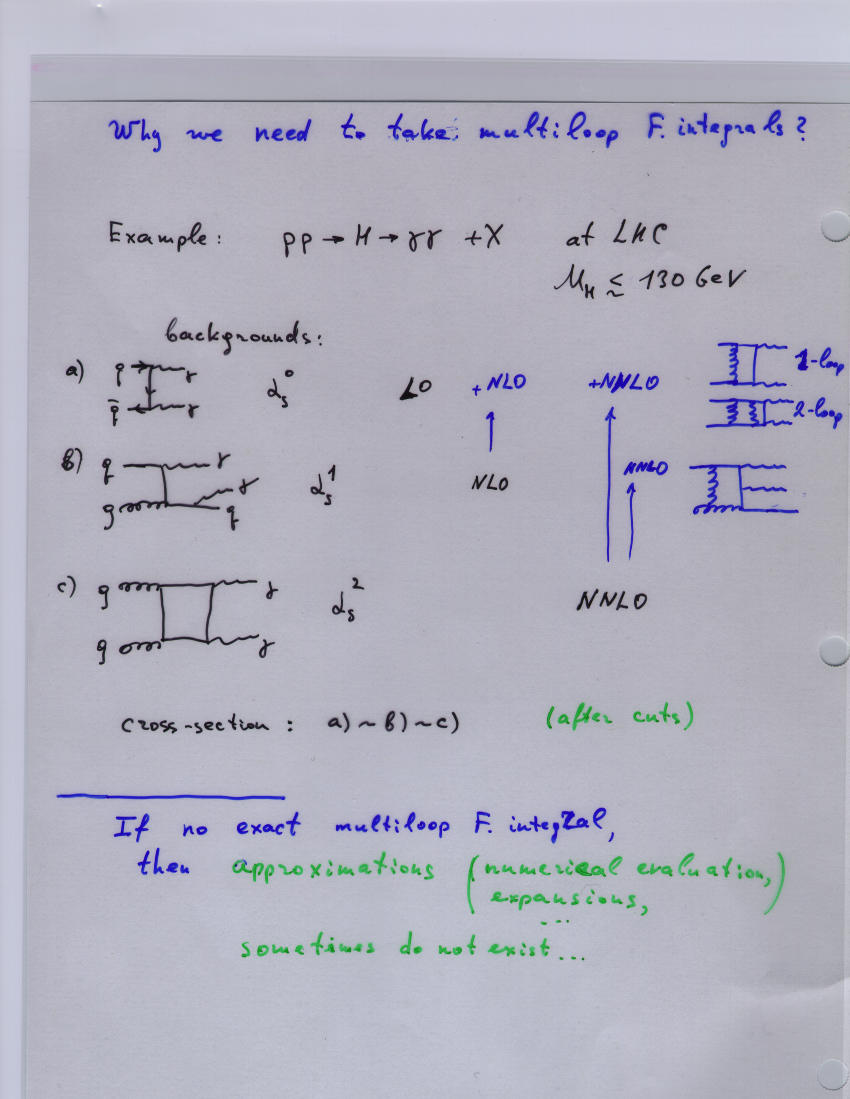 Why we need to take multiloop F. integrals?
Example: pp → H → γγ + X at LHC
M_H ≲ 130 GeV
backgrounds:
a) q γ q̄ γ α_s^0 LO + NLO + NNLO 1-loop
2-loop
b) q γ g γ q α_s^1 NLO NNLO
c) g γ g γ α_s^2 NNLO
cross-section: a) ~ b) ~ c) (after cuts)
If no exact multiloop F. integral,
then approximations (numerical evaluation,
expansions,
...)
sometimes do not exist...